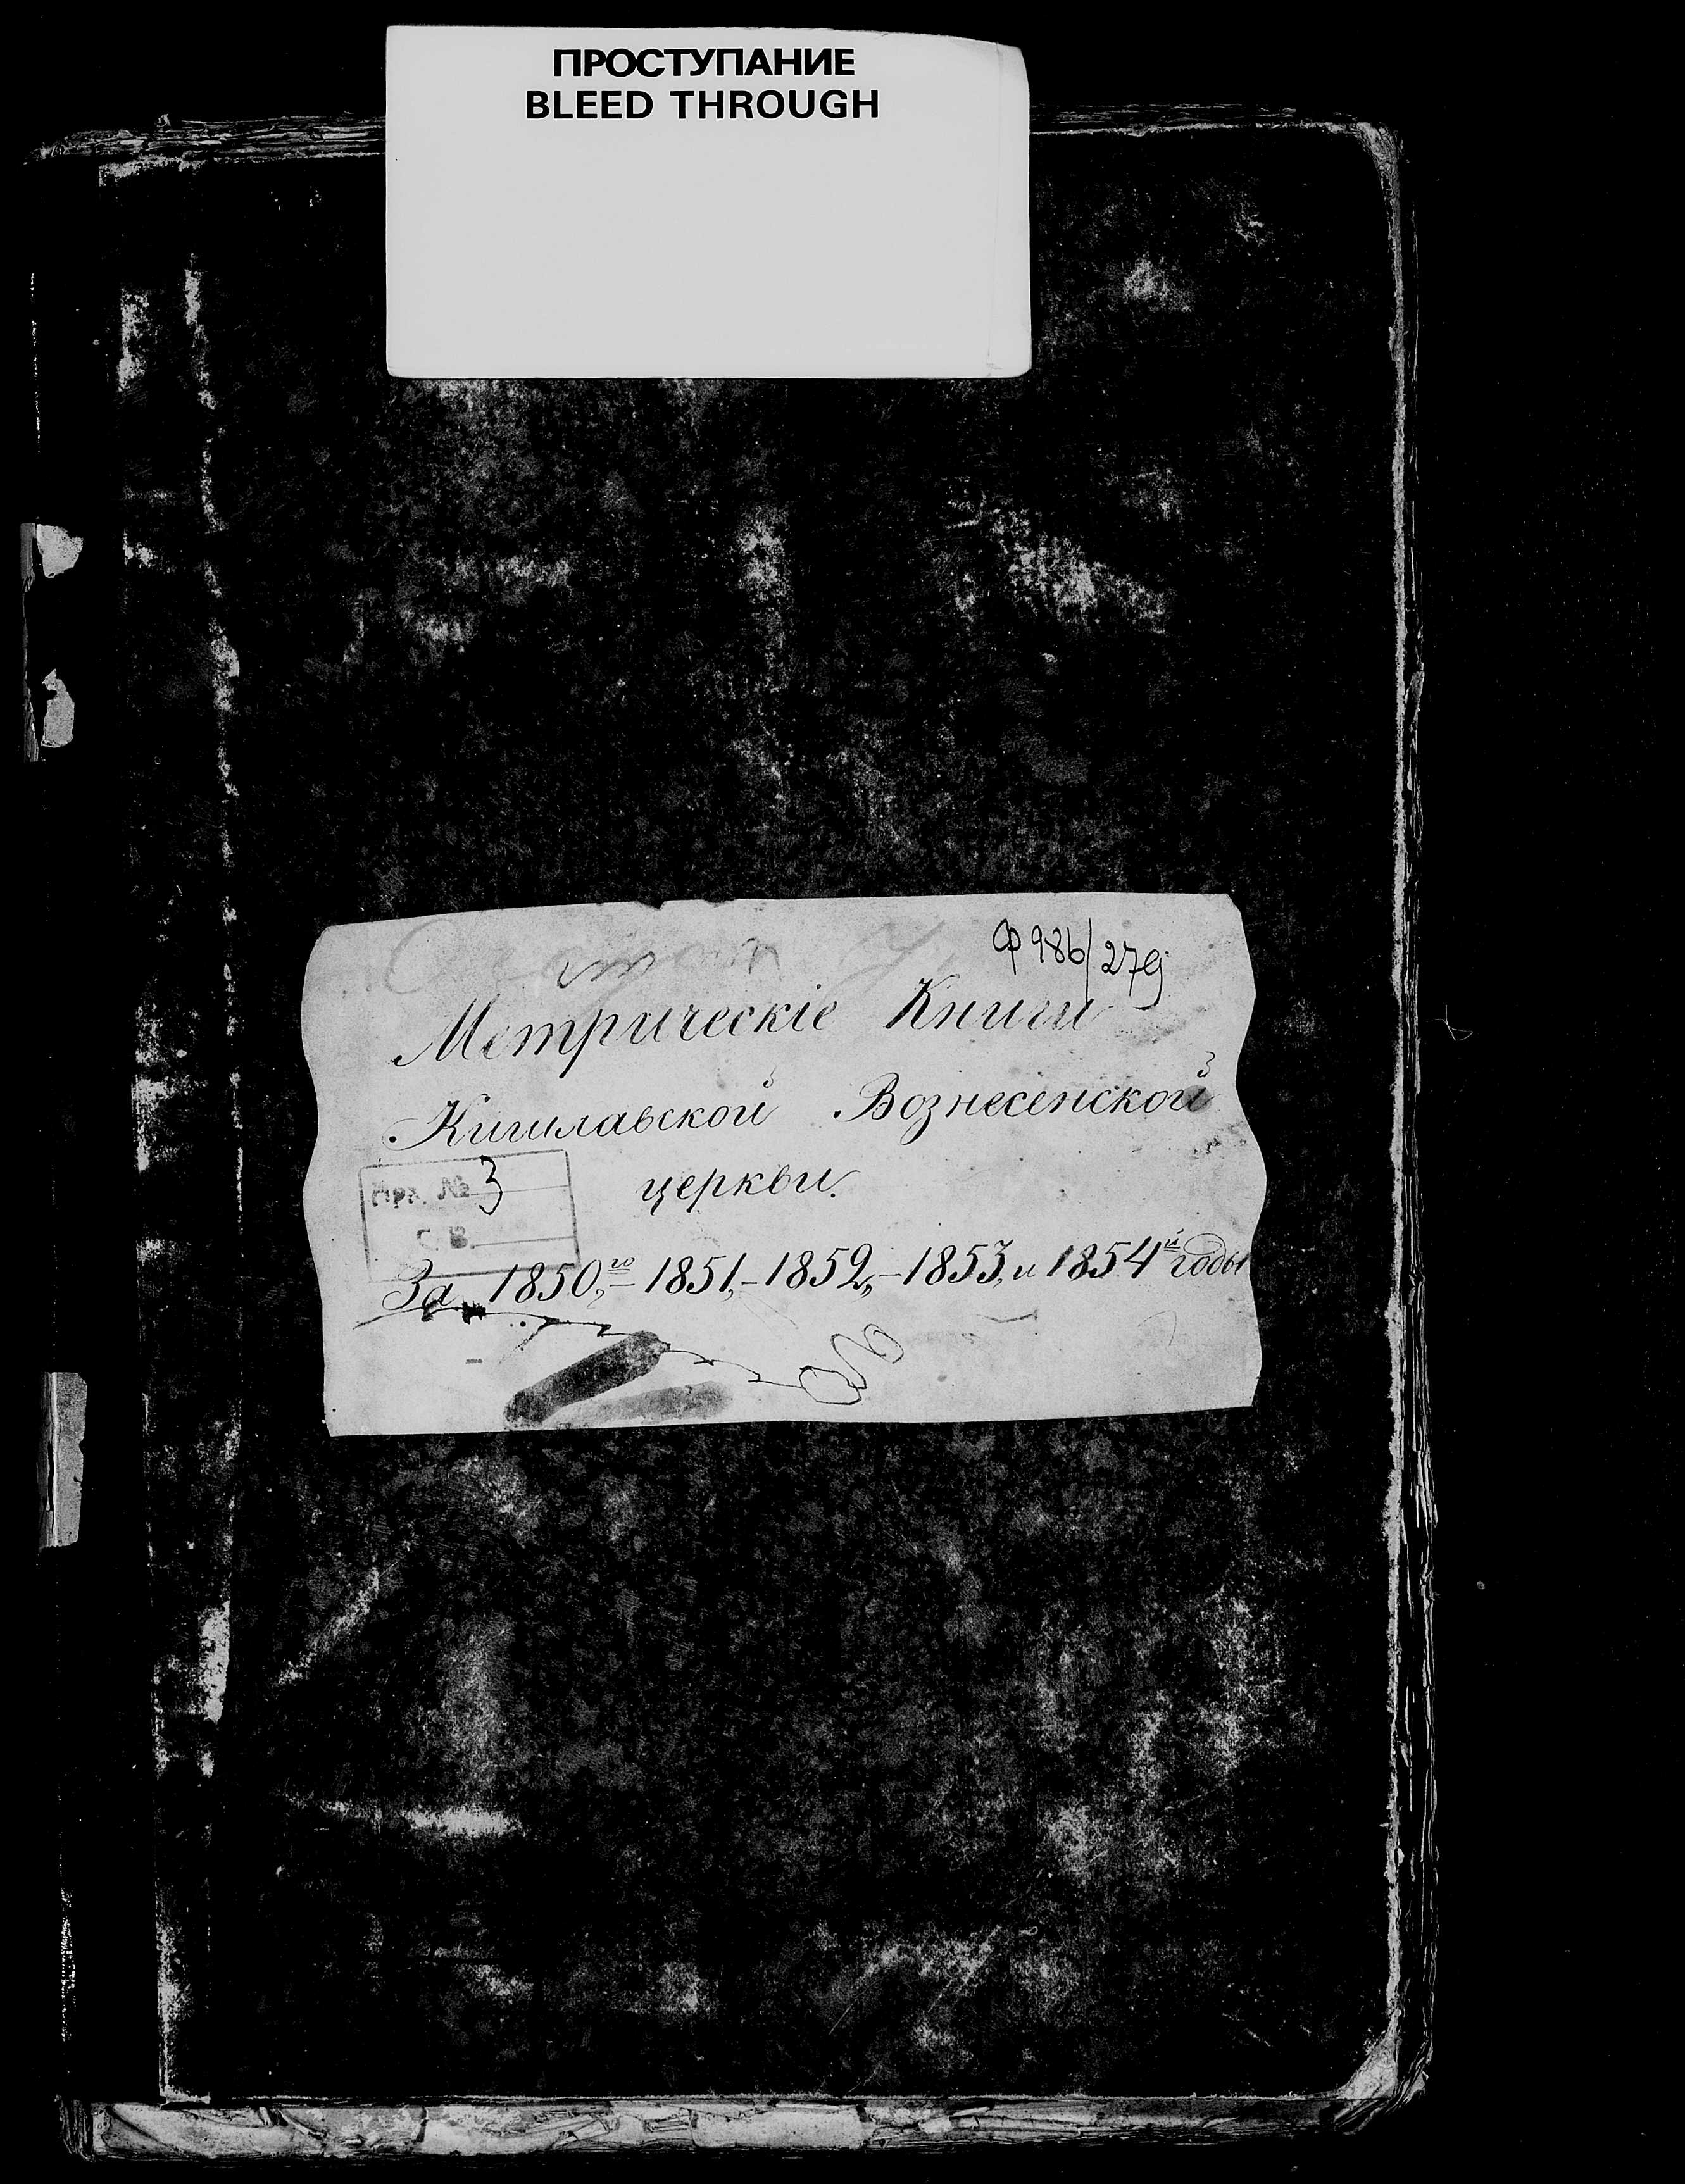 ПРОСТУПАНИЕ
BLEED THROUGH
Ф 986/279
Метрическіе Книги
Кишлавской Вознесенской
церкви.
Арх. № 3
С. В.
За 1850,го – 1851, – 1852, – 1853, и 1854й годы